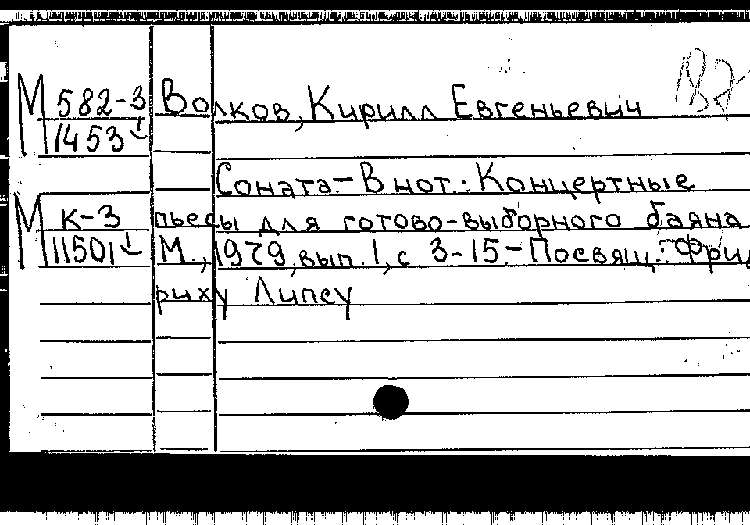 М 582-3 Волков, Кирилл Евгеньевич
1453
Соната - В нот.: Концертные
М к-3 пьесы для готово-выборного баяна
11501 М., 1979, вып. 1, с 3-15. - Посвящ.: Фрид
риху Липсу